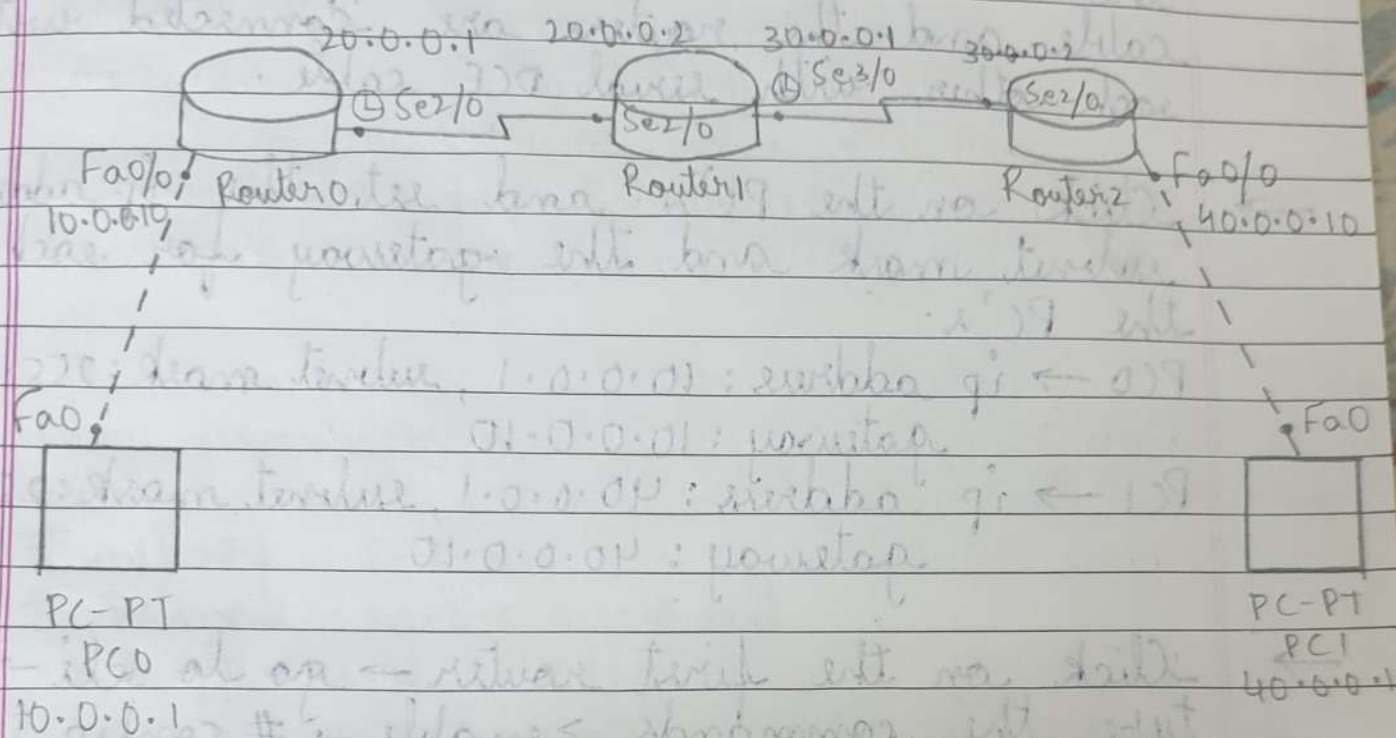 20.0.0.1 20.0.0.2 30.0.0.1 30.0.0.2
Se2/0 Se2/0 Se3/0 Se2/0
Fa0/0 Router0 Router1 Router2 Fa0/0
10.0.0.10 40.0.0.10
Fa0 Fa0
PC-PT PC-PT
PC0 PC1
10.0.0.1 40.0.0.1